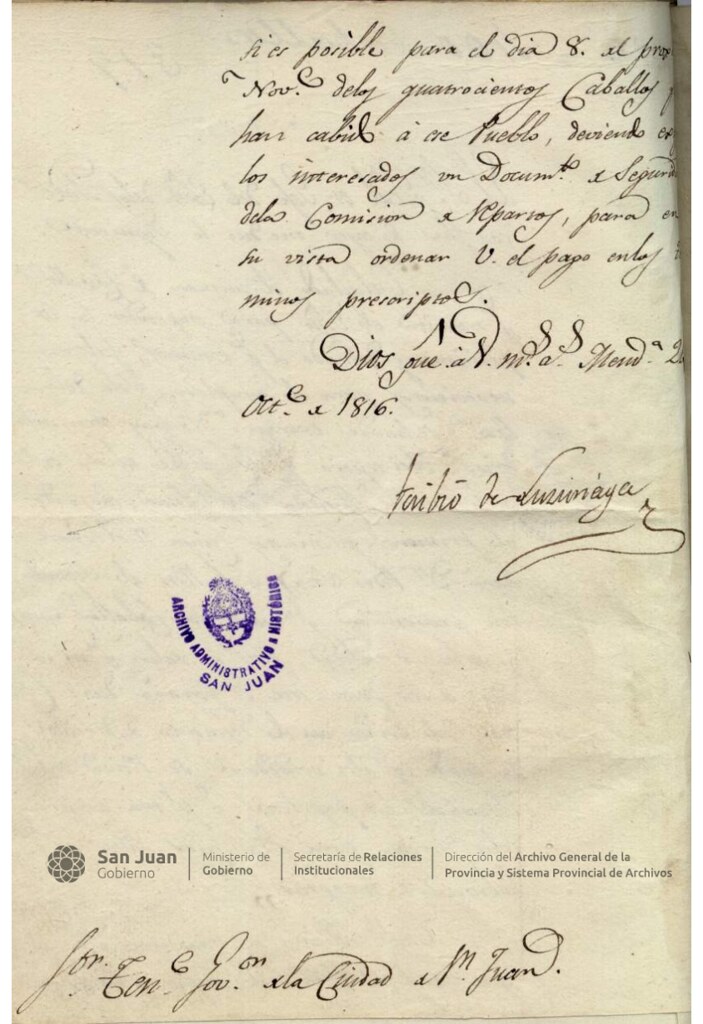 si es posible para el dia 8. del prox
Nov.e delos quatrocientos Caballos
han cabido à ese Pueblo, deviendo
los interesados un Docum.to de Segurid
dela Comision de Repartos, para en
su vista ordenar V. el pago enlos
minos prescriptos.
Dios gue. à V. m.s a.s Mend.a 2
Oct.e de 1816.
Toribio de Luzuriaga
ARCHIVO ADMINISTRATIVO e HISTÓRICO
SAN JUAN
San Juan
Gobierno
Ministerio de
Gobierno
Secretaría de Relaciones
Institucionales
Dirección del Archivo General de la
Provincia y Sistema Provincial de Archivos
Sor. Ten.e Gov.or dela Ciudad de Sn Juan.